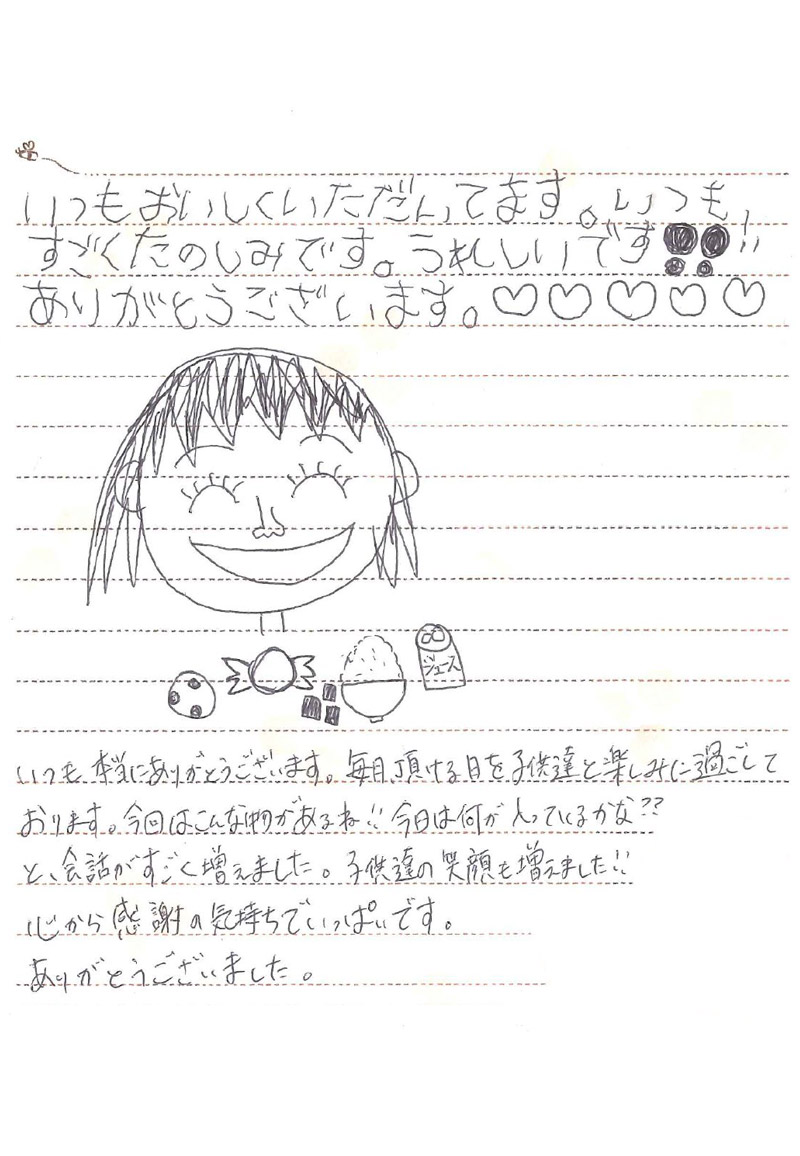 いつもおいしくいただいてます。いつも、
すごくたのしみです。うれしいです!!!!
ありがとうございます。♡♡♡♡♡
ジュース
いつも本当にありがとうございます。毎月、頂ける日を子供達と楽しみに過ごして
おります。今回はこんな物があるね!!今日は何が入っているかな??
と、会話がすごく増えました。子供達の笑顔も増えました!!
心から感謝の気持ちでいっぱいです。
ありがとうございました。